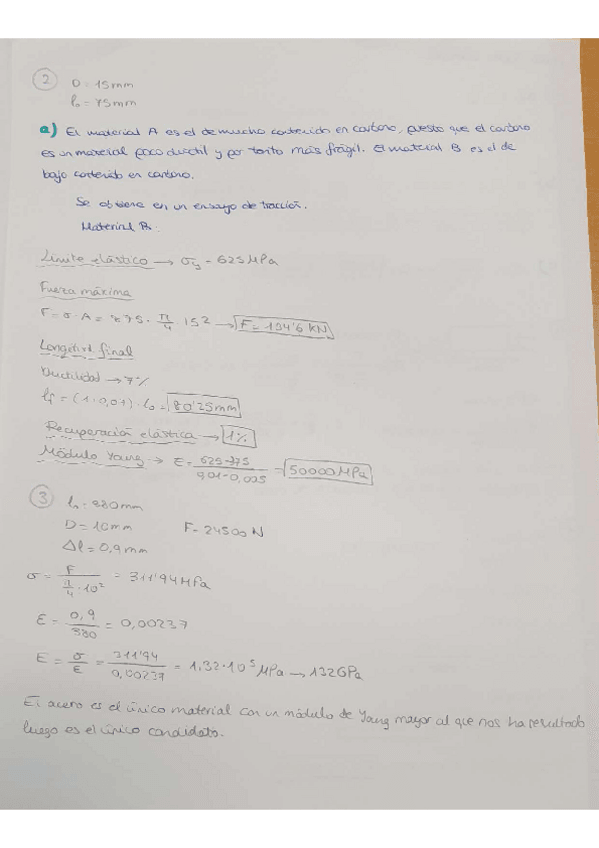 2 D = 15mm
l₀ = 75mm
a) El material A es el de mucho contenido en carbono, puesto que el carbono
es un material poco ductil y por tanto más frágil. El material B es el de
bajo contenido en carbono.
Se obtiene en un ensayo de tracción.
Material B:
Límite elástico → σy = 625 MPa
Fuerza máxima
F = σ · A = 875 · π/4 · 15² → F = 154'6 kN
Longitud final
Ductilidad → 7%
lf = (1 + 0,07) · l₀ = 80'25mm
Recuperación elástica → 1%
Módulo Young → E = 625-375 / 0,01-0,005 = 50000 MPa
3 l₀ = 380mm
D = 10mm F = 24500 N
Δl = 0,9mm
σ = F / π/4 · 10² = 311'94 MPa
ε = 0,9 / 380 = 0,00237
E = σ/ε = 311'94 / 0,00237 = 1.32 · 10⁵ MPa → 132 GPa
El acero es el único material con un módulo de Young mayor al que nos ha resultado
luego es el único candidato.